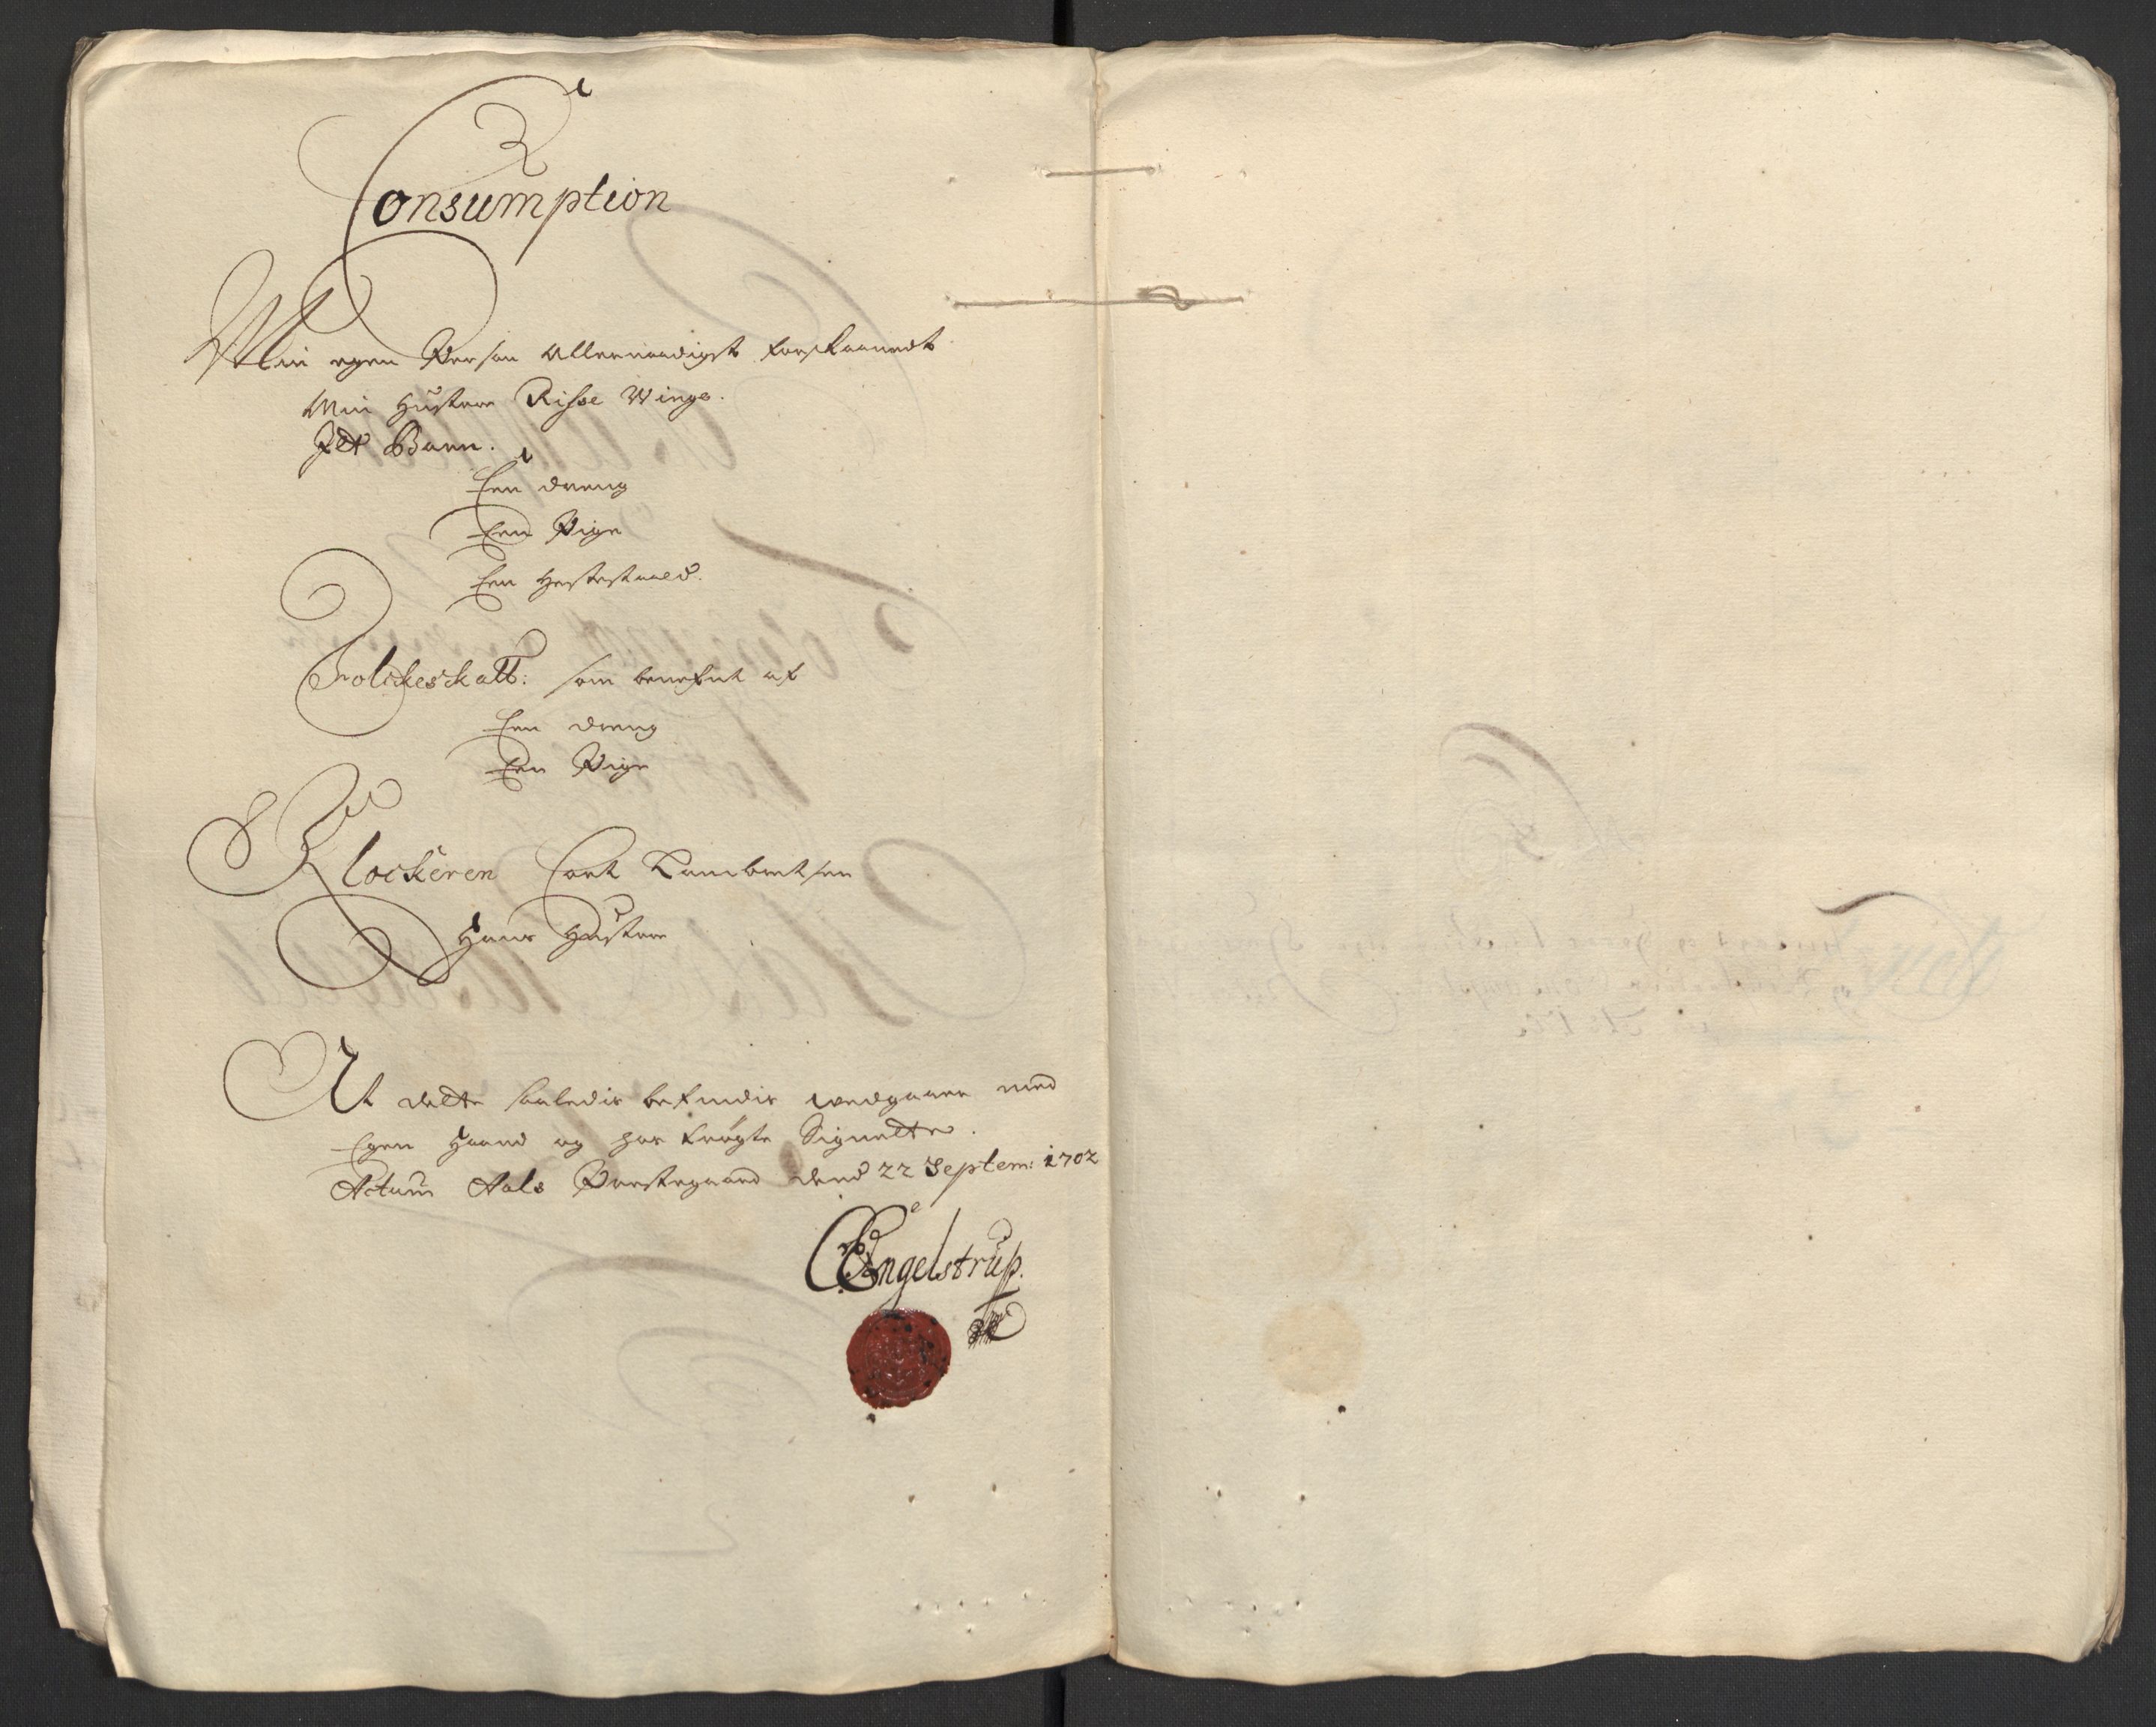 Consumption
Min egen Person Allernaadigst forskaanedt
Min Hustroe Risse Winge.
Jdt Barn.
Een dreng
Een Pige
Een Hestestaald.
Folckeskatt: som benefnt af
Een dreng
Een Pige
Klockeren Cort Lambretsen
Hans Hustroe
At dette saaledis befindis vedgaaer med
Egen Haand og hos trögte Signette.
Actum Aals Prestegaard dend 22 Septem: 1702
CEngelstrup.